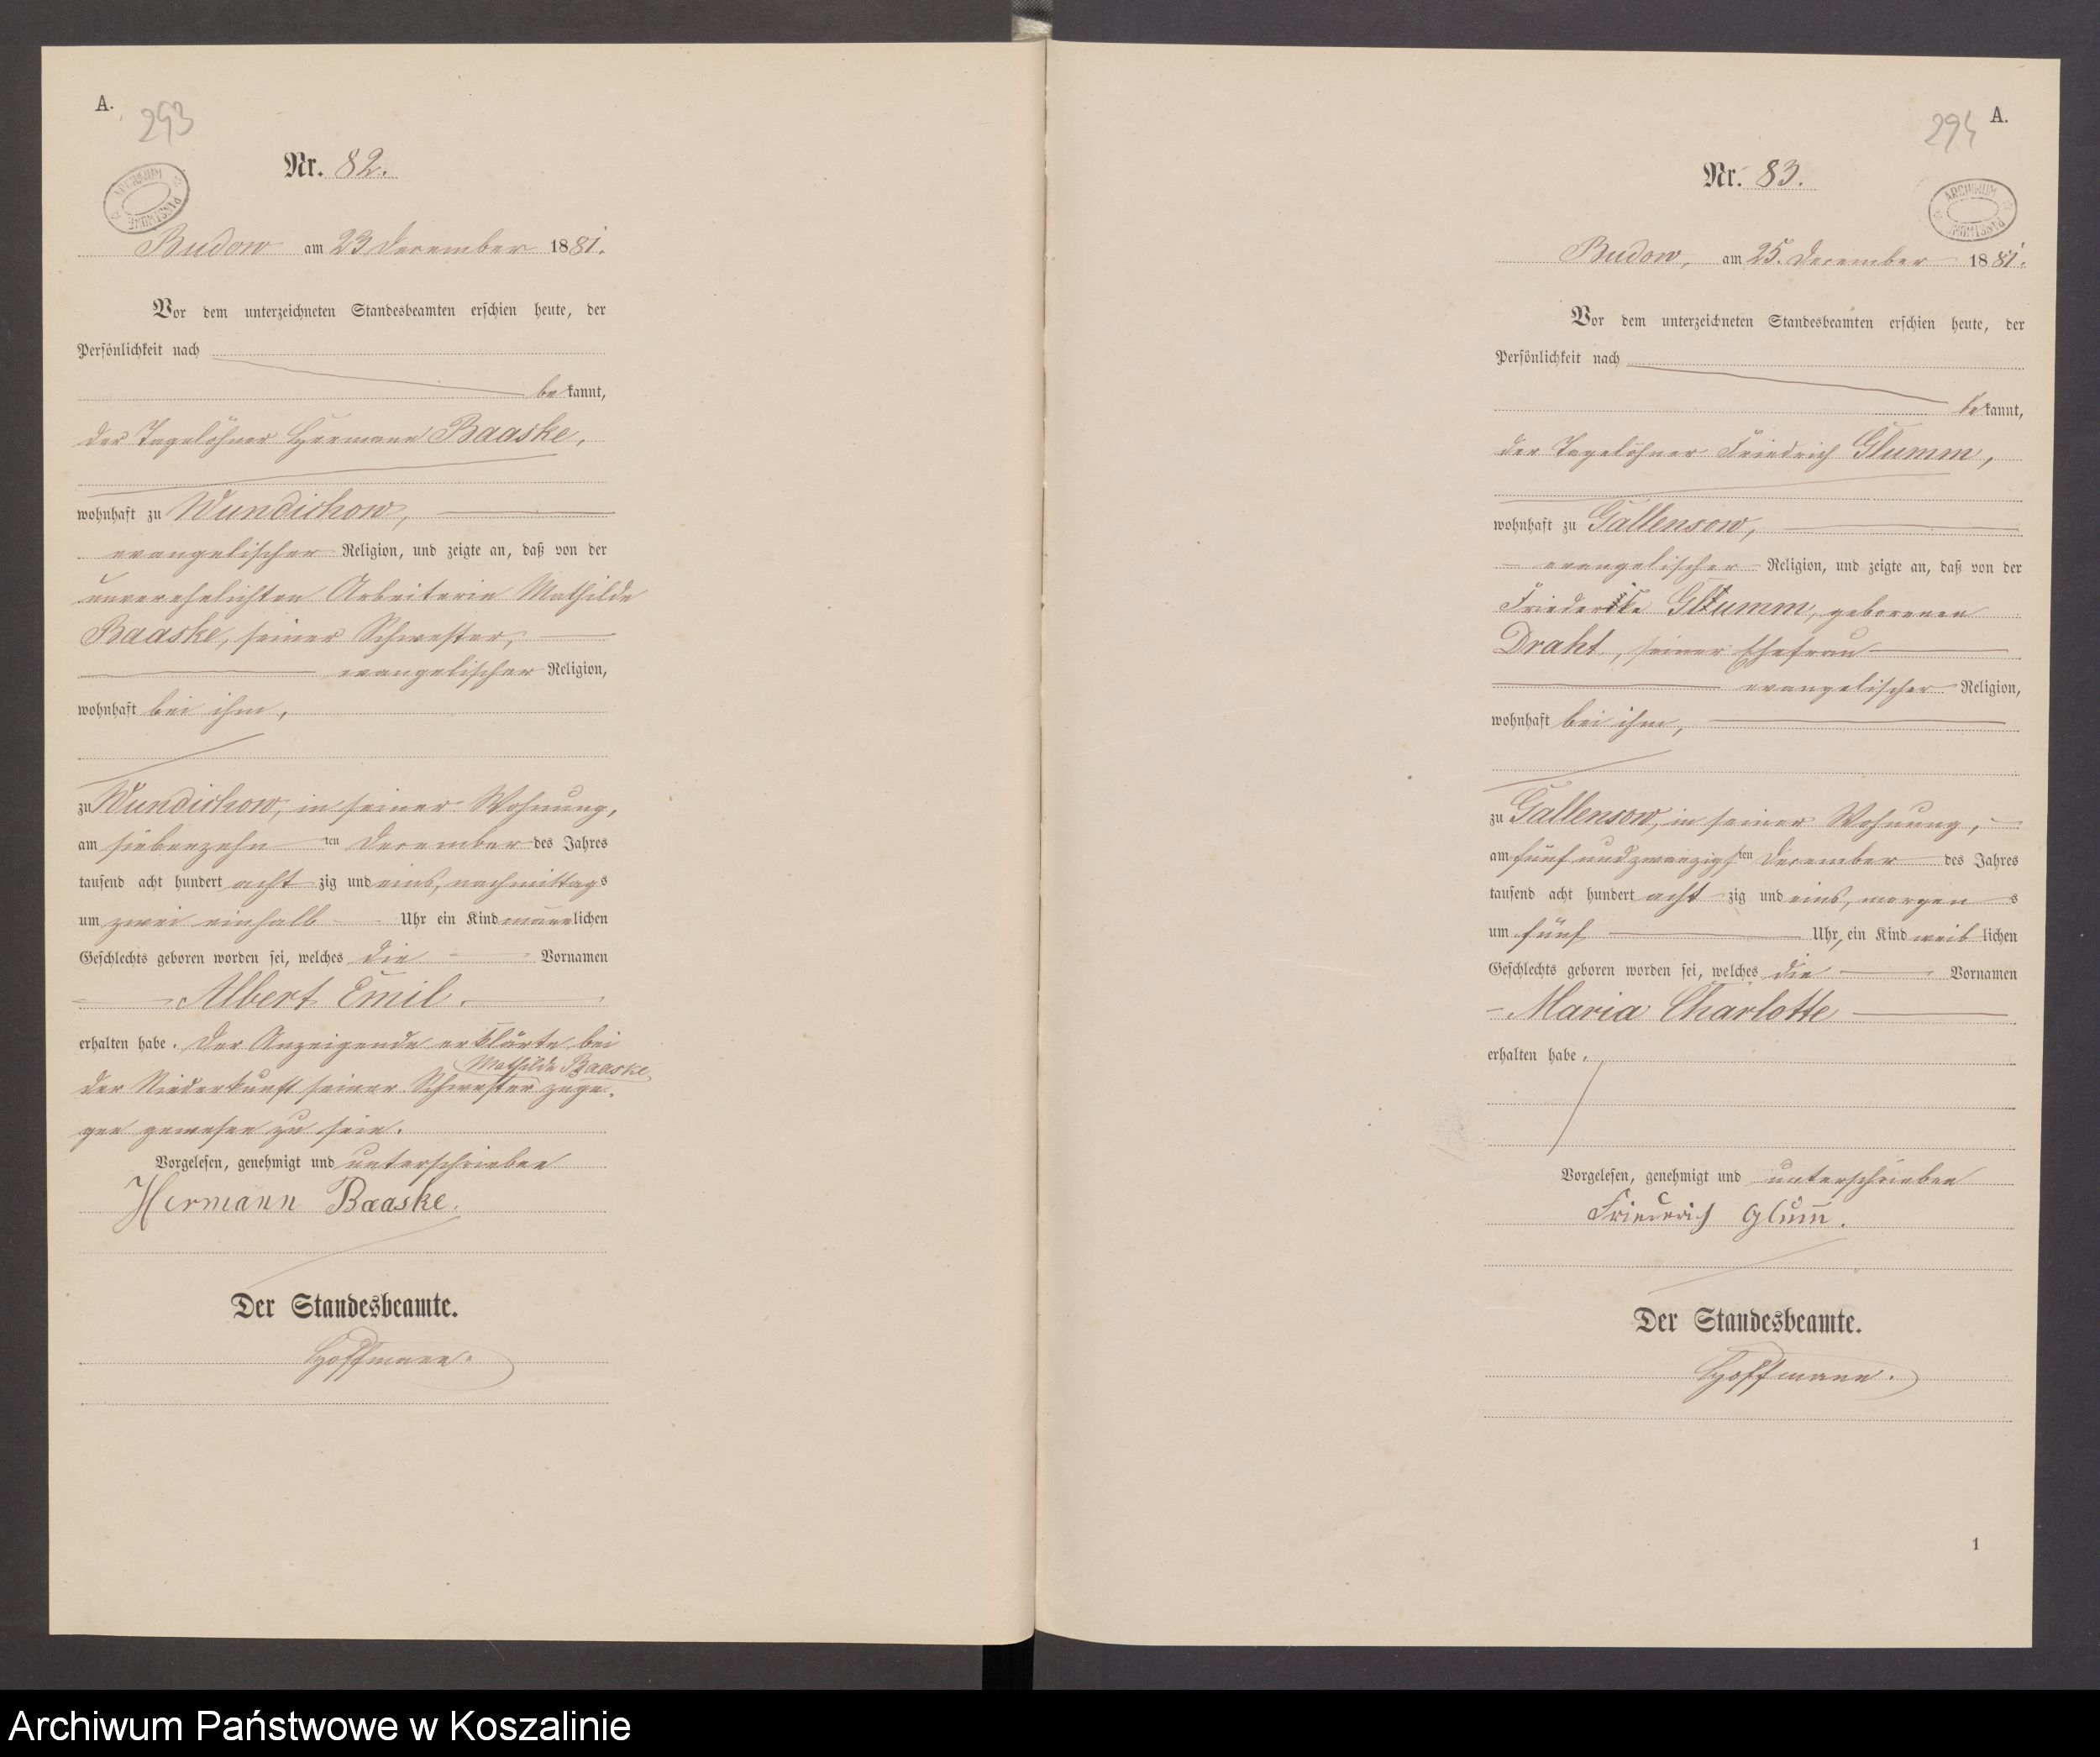 A.
293
Nr. 82.
ARCHIWUM PAŃSTWOWE
Budow am 23 December 1881.
Vor dem unterzeichneten Standesbeamten erschien heute, der
Persönlichkeit nach
bekannt,
der Tagelöhner Hermann Baaske,
wohnhaft zu Wundichow,
evangelischer Religion, und zeigte an, daß von der
unverehelichten Arbeiterin Mathilde
Baaske, seiner Schwester,
evangelischer Religion,
wohnhaft bei ihm,
zu Wundichow, in seiner Wohnung,
am siebenzehn ten December des Jahres
tausend acht hundert acht zig und eins, nachmittags
um zwei einhalb Uhr ein Kind männlichen
Geschlechts geboren worden sei, welches die Vornamen
Albert Emil.
erhalten habe. Der Anzeigende erklärte bei
Mathilde Baaske
der Niederkunft seiner Schwester zuge-
gen gewesen zu sein.
Vorgelesen, genehmigt und unterschrieben
Hermann Baaske.
Der Standesbeamte.
Hoffmann.
294
A.
Nr. 83.
ARCHIWUM PAŃSTWOWE
Budow, am 25. December 1881.
Vor dem unterzeichneten Standesbeamten erschien heute, der
Persönlichkeit nach
bekannt,
der Tagelöhner Friedrich Glumm,
wohnhaft zu Gallensow,
evangelischer Religion, und zeigte an, daß von der
Friederike Glumm, geborenen
Draht, seiner Ehefrau
evangelischer Religion,
wohnhaft bei ihm,
zu Gallensow, in seiner Wohnung,
am fünf und zwanzigsten December des Jahres
tausend acht hundert acht zig und eins, morgens
um fünf Uhr, ein Kind weiblichen
Geschlechts geboren worden sei, welches die Vornamen
Maria Charlotte
erhalten habe.
Vorgelesen, genehmigt und unterschrieben
Friederich Glum̄.
Der Standesbeamte.
Hoffmann.
1
Archiwum Państwowe w Koszalinie